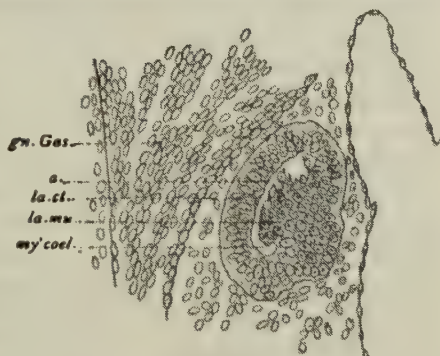 gn. Gas.
a.
la.ct.
la.mu
my'coel.